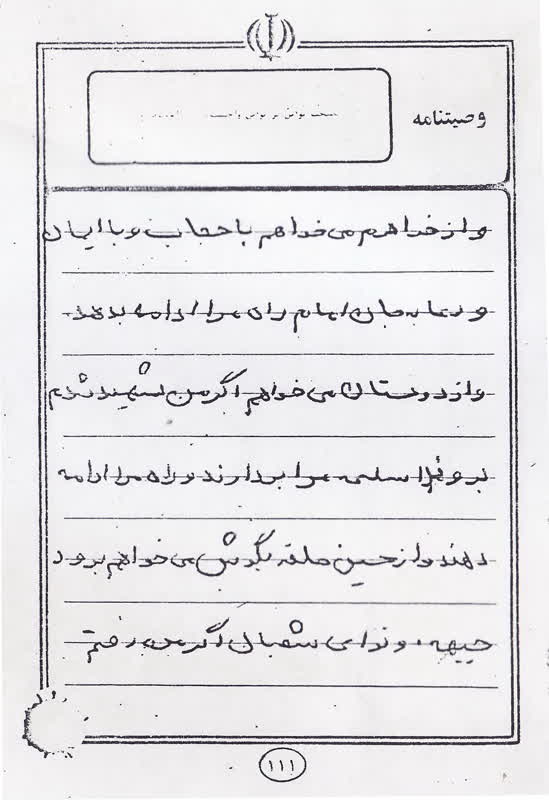 وصیتنامه
واز خواهرم می خواهم با حجاب و با ایمان
و دعا به جان امام راه مرا ادامه بدهد.
واز دوستان می خواهم اگر من شهید شدم
بروند اسلحه مرا بردارند و راه مرا ادامه
دهند واز حسین حلقه بگوش می خواهم برود
جبهه، و ندای اگر من رفتم
۱۱۱